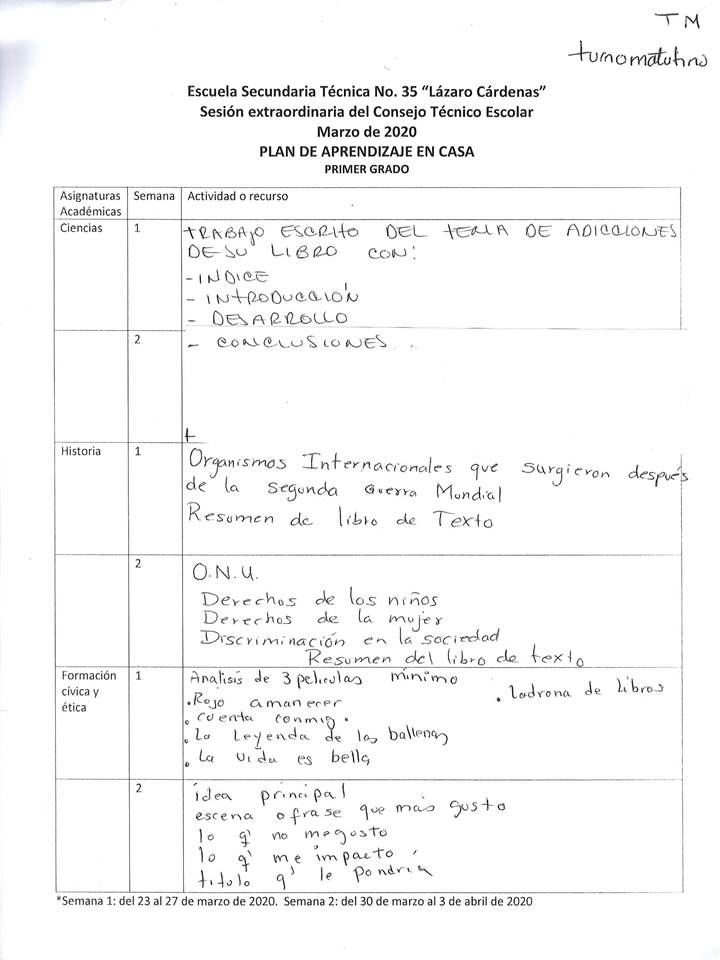 TM
turno matutino
Escuela Secundaria Técnica No. 35 “Lázaro Cárdenas”
Sesión extraordinaria del Consejo Técnico Escolar
Marzo de 2020
PLAN DE APRENDIZAJE EN CASA
PRIMER GRADO
Asignaturas Académicas
Semana
Actividad o recurso
Ciencias
1
TRABAJO ESCRITO DEL TEMA DE ADICCIONES
DE SU LIBRO CON:
- INDICE
- INTRODUCCIÓN
- DESARROLLO
2
- CONCLUSIONES.
Historia
1
Organismos Internacionales que surgieron después
de la segunda Guerra Mundial
Resumen de libro de Texto
2
O.N.U.
Derechos de los niños
Derechos de la mujer
Discriminación en la sociedad
Resumen del libro de texto
Formación
cívica y
ética
1
Analisis de 3 peliculas minimo
. Rojo amanecer
. ladrona de libros
. cuenta conmigo.
. La Leyenda de las ballenas
. La vida es bella
2
idea principal
escena o frase que más gusto
lo q' no me gusto
lo q' me impacto
titulo q' le pondria
*Semana 1: del 23 al 27 de marzo de 2020. Semana 2: del 30 de marzo al 3 de abril de 2020